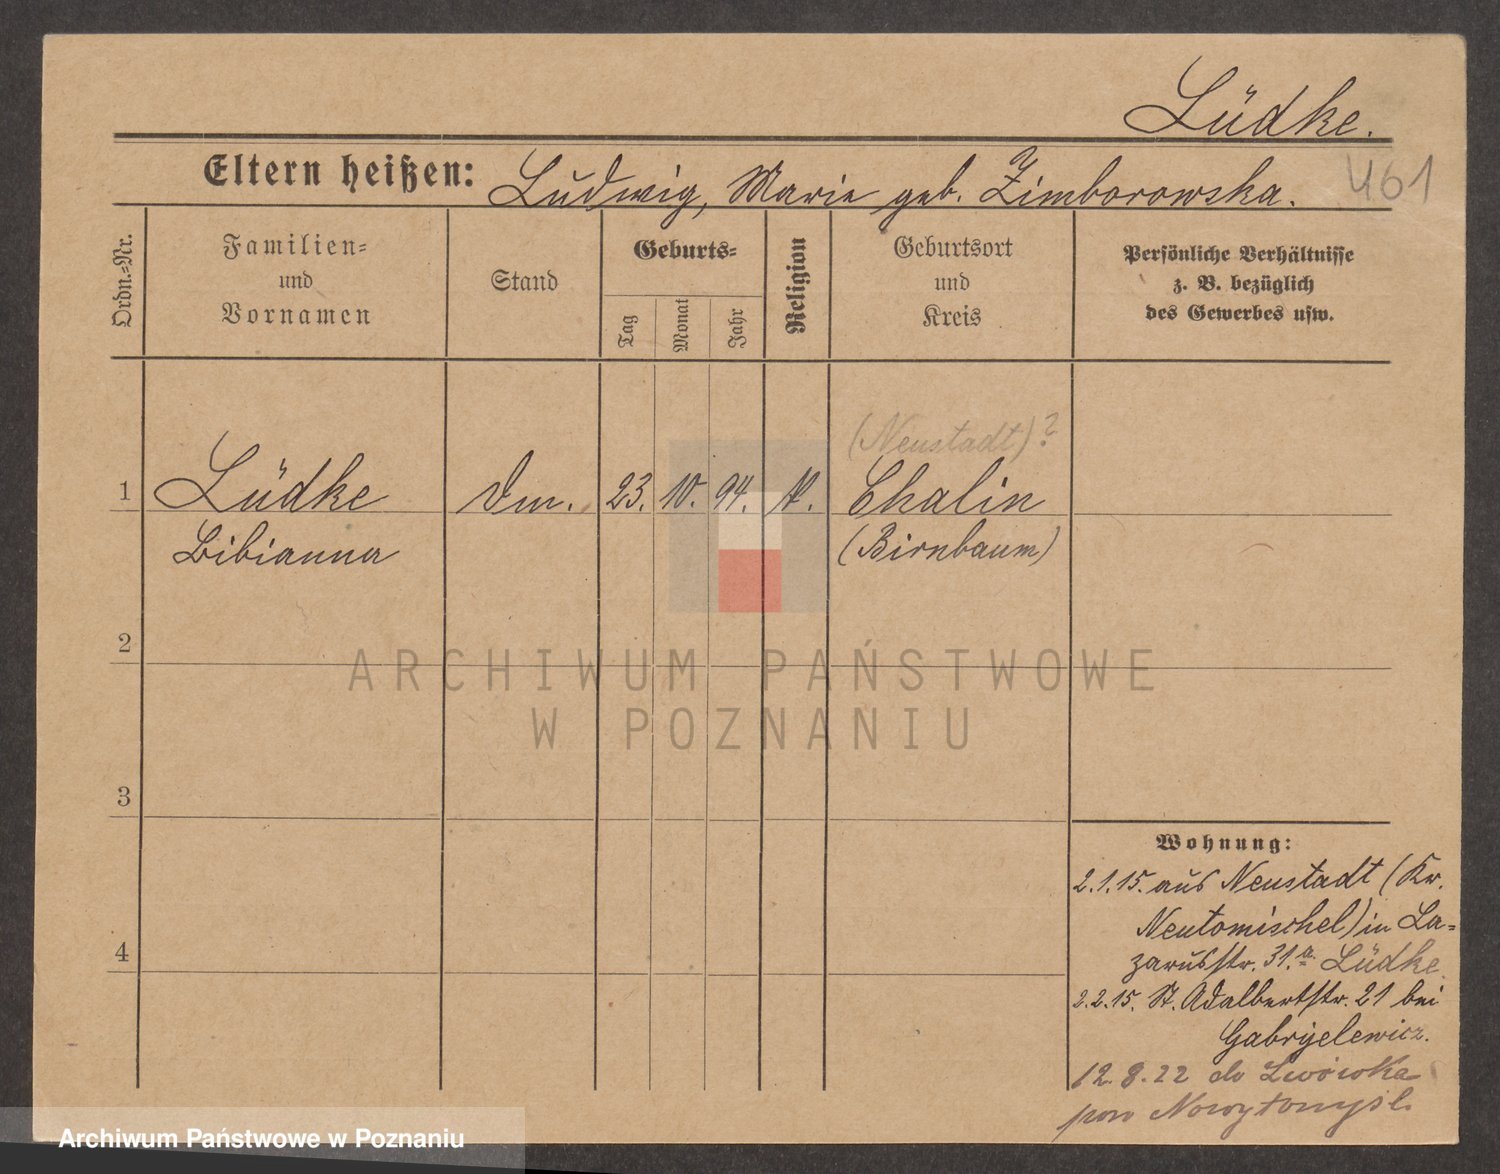 Lüdke.
461
Eltern heißen: Ludwig, Marie geb. Zimborowska.
Ordn.=Nr.
Familien=
und
Vornamen
Stand
Geburts=
Tag
Monat
Jahr
Religion
Geburtsort
und
Kreis
Persönliche Verhältnisse
z. B. bezüglich
des Gewerbes usw.
(Neustadt)?
1 Lüdke 23. 10. 94. Chalin
Bibianna (Birnbaum)
2
3
4
Wohnung:
2.1.15. aus Neustadt (Kr.
Neutomischel) in La=
zarusstr. 31.a Lüdke.
2.2.15. St. Adalbertstr. 21 bei
Gabryelewicz.
12.8.22 do Lwówka
pow Nowytomyśl.
ARCHIWUM PAŃSTWOWE
W POZNANIU
Archiwum Państwowe w Poznaniu